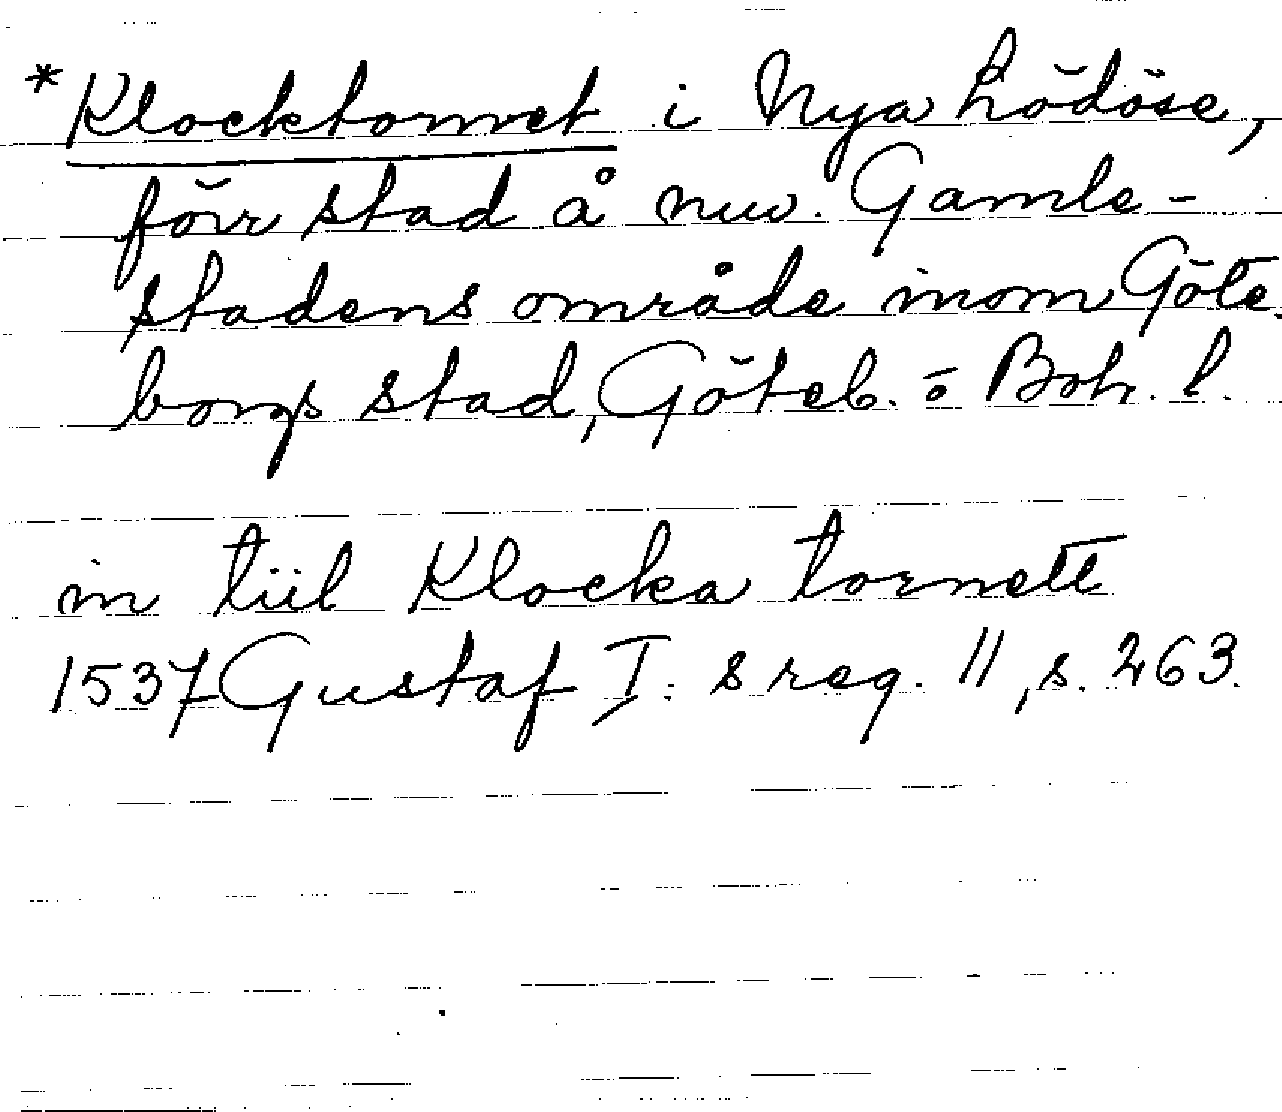 *Klocktornet i Nya Lödöse,
förr stad å nuv. Gamle-
stadens område inom Göte-
borgs stad, Göteb. o Boh. l.
in tiil Klocka tornett
1537 Gustaf I:s reg. 11, s. 263.